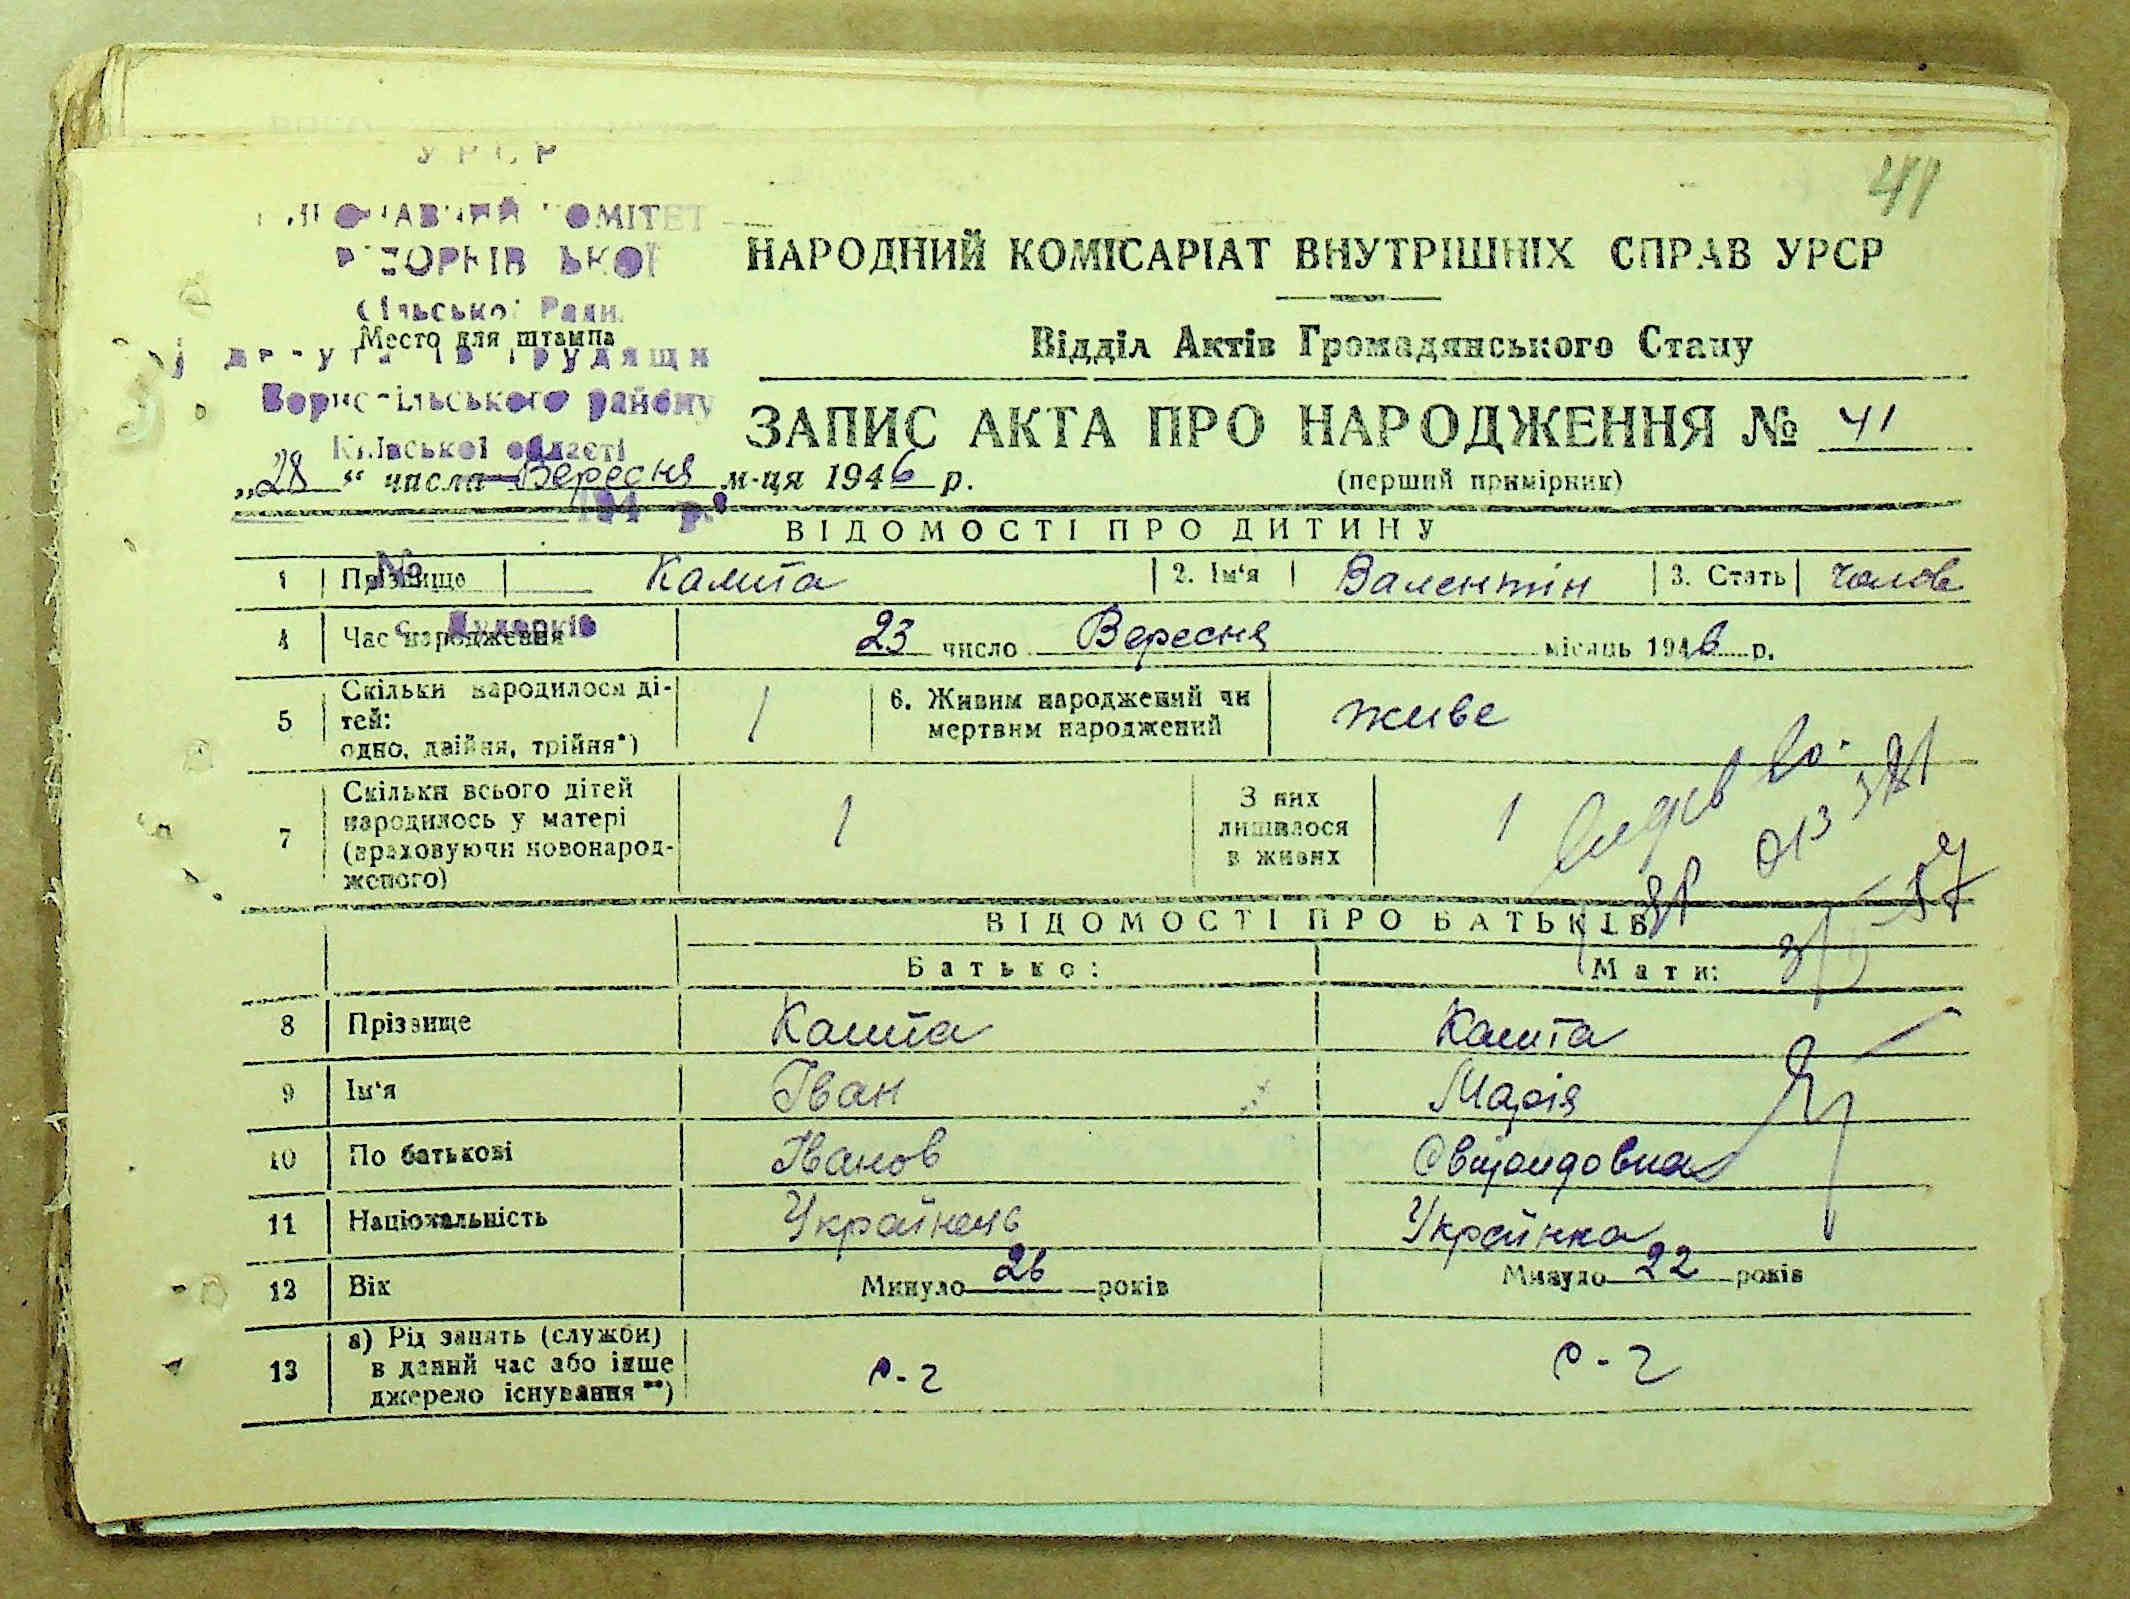 УРСР
41
НАРОДНИЙ КОМІСАРІАТ ВНУТРІШНІХ СПРАВ УРСР
сільської Ради
Место для штампа
Відділ Актів Громадянського Стану
Бориспільського району
Київської області
ЗАПИС АКТА ПРО НАРОДЖЕННЯ № 41
„28" числа Вересня м-ця 1946 р.
(перший примірник)
194 р.
ВІДОМОСТІ ПРО ДИТИНУ
№
1 Прізвище Калита 2. Ім'я Валентін 3. Стать чолов
с. Дударків
4 Час народження 23 число Вересня місяць 1946 р.
5 Скільки народилося ді-
тей:
одно, двійня, трійня*) 1
6. Живим народжений чи
мертвим народжений живе
7 Скільки всього дітей
народилось у матері
(враховуючи новонарод-
женого) 1
З них
лишилося
в живих 1
ВІДОМОСТІ ПРО БАТЬКІВ
Батько: Мати:
8 Прізвище Калита Калита
9 Ім'я Іван Марія
10 По батькові Іванов
11 Національність Українець Українка
12 Вік Минуло 26 років Минуло 22 років
13 а) Рід занять (служби)
в даний час або інше
джерело існування**) с-г с-г